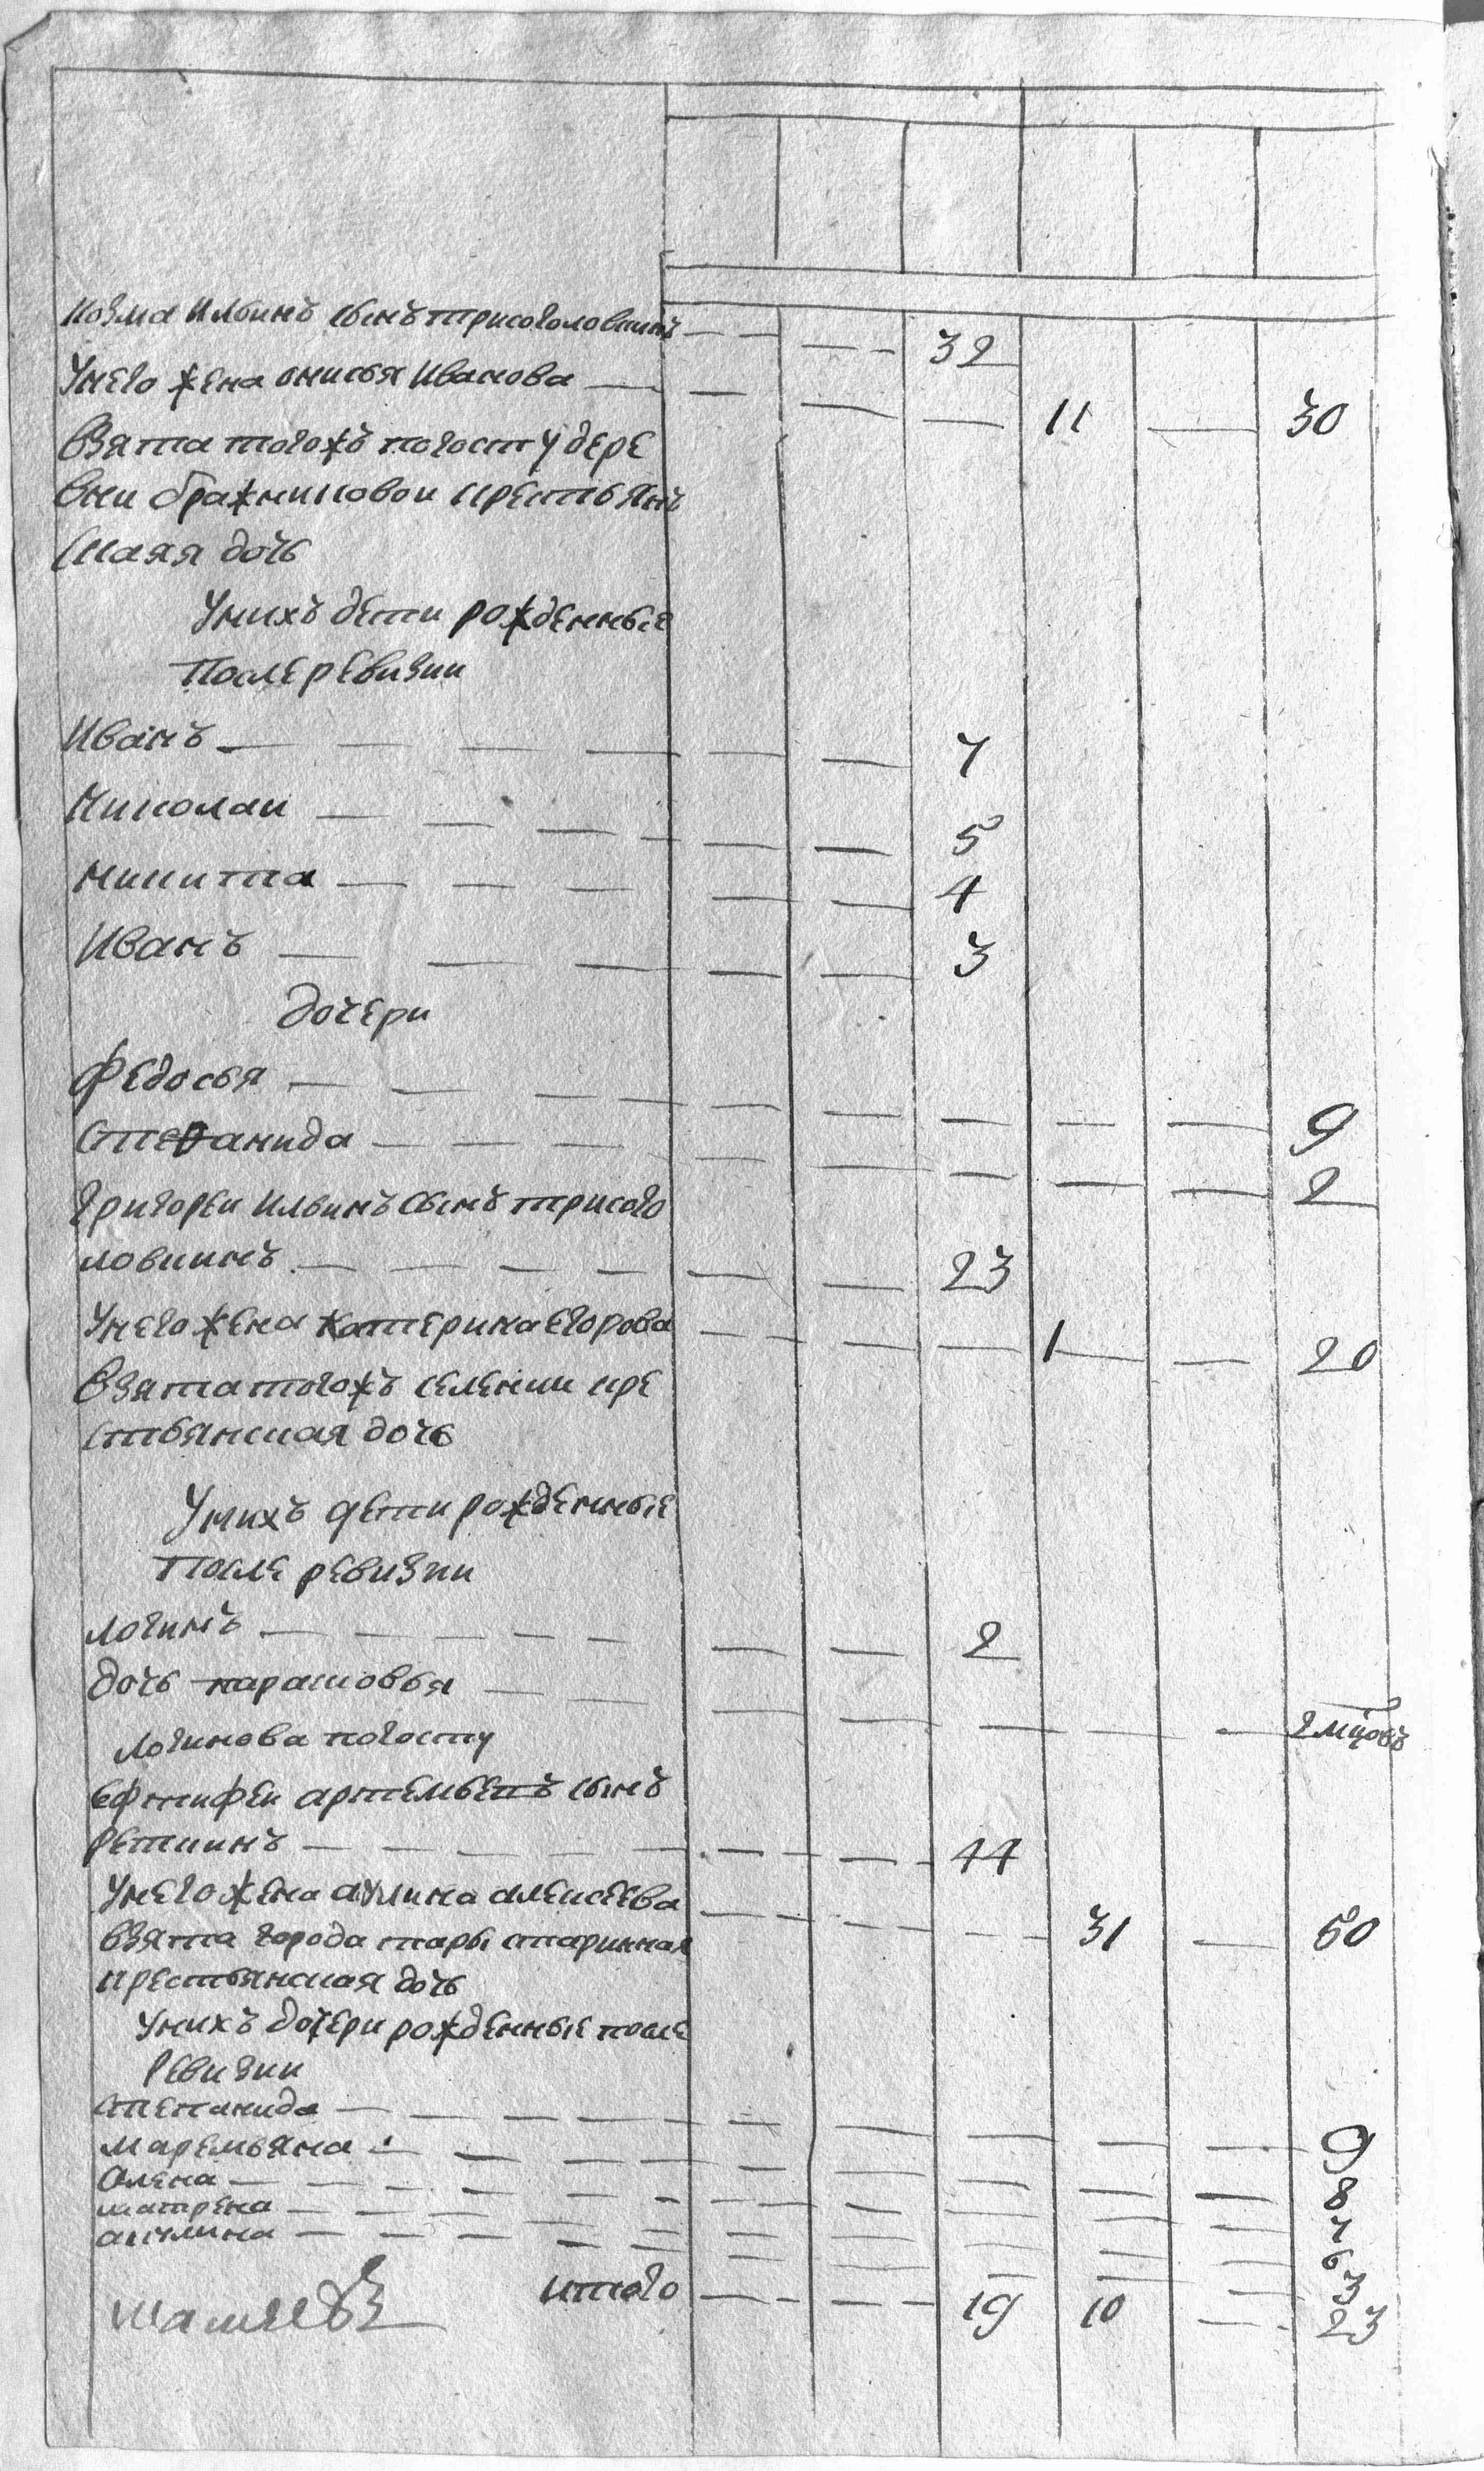 козма Ильинъ сынъ трисоголовкинъ 32
Унего жена онисья Иванова 11 30
взята тогожъ погосту дере
вни бражниковои крестьянъ
скаяя дочь
Унихъ дети рожденные
После ревизии
Иванъ 7
Николаи 5
никита 4
Иванъ 3
дочери
Федосья 9
Степанида 2
Григореи Ильинъ сынъ трисого
ловкинъ 23
Унего жена катерина Егорова 1 20
взята тогожъ селении кре
стьянская дочь
Унихъ дети рожденные
После ревизии
логинъ 2
дочь парасковья 2 мцовъ
Логинова погосту
ефтифеи артемьевъ сынъ
реткинъ 44
Унего жена акулина алексеева 31 50
взята города тары старинная
крестьянская дочь
Унихъ дочери рожденные после
Ревизии
степанида 9
маремьяна 8
Олена 7
матрена 6
акулина 3
итого 19 10 23